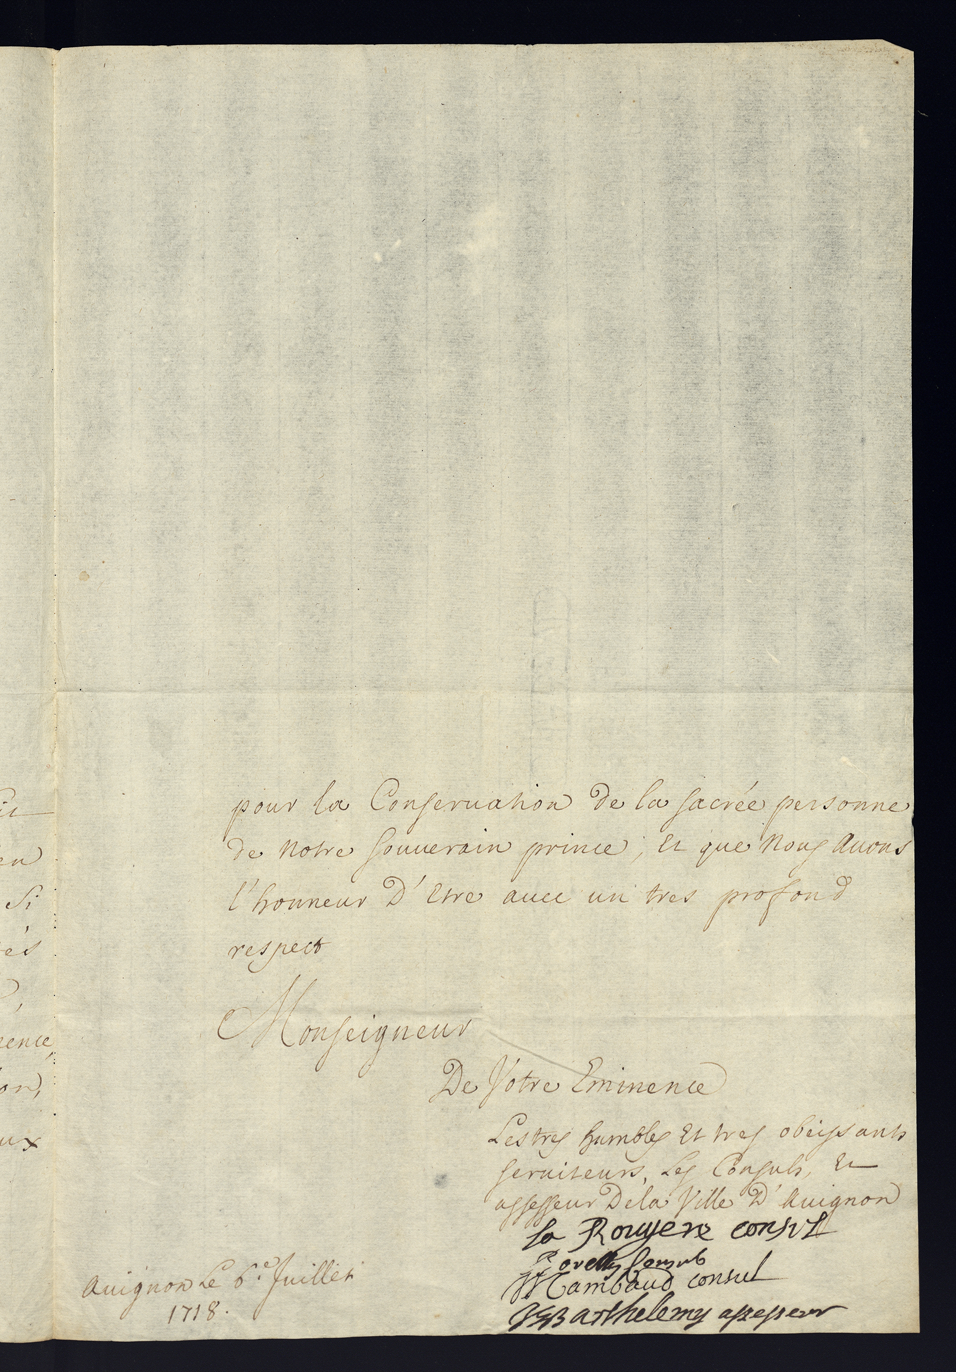 pour la Conseruation de la sacrée personne
de notre souuerain prince, et que Nous Auons
l'honneur D'Etre auec un tres profond
respect
Monseigneur
De Votre Eminence
Les tres humbles Et tres obeissants
seruiteurs, Les Consuls, Et
assesseur Dela Ville D'Auignon
la Rouyere consul
consul
Barthelemy assesseur
Auignon Le 6e. Juillet
1718.
en
si
ence
on,
ux